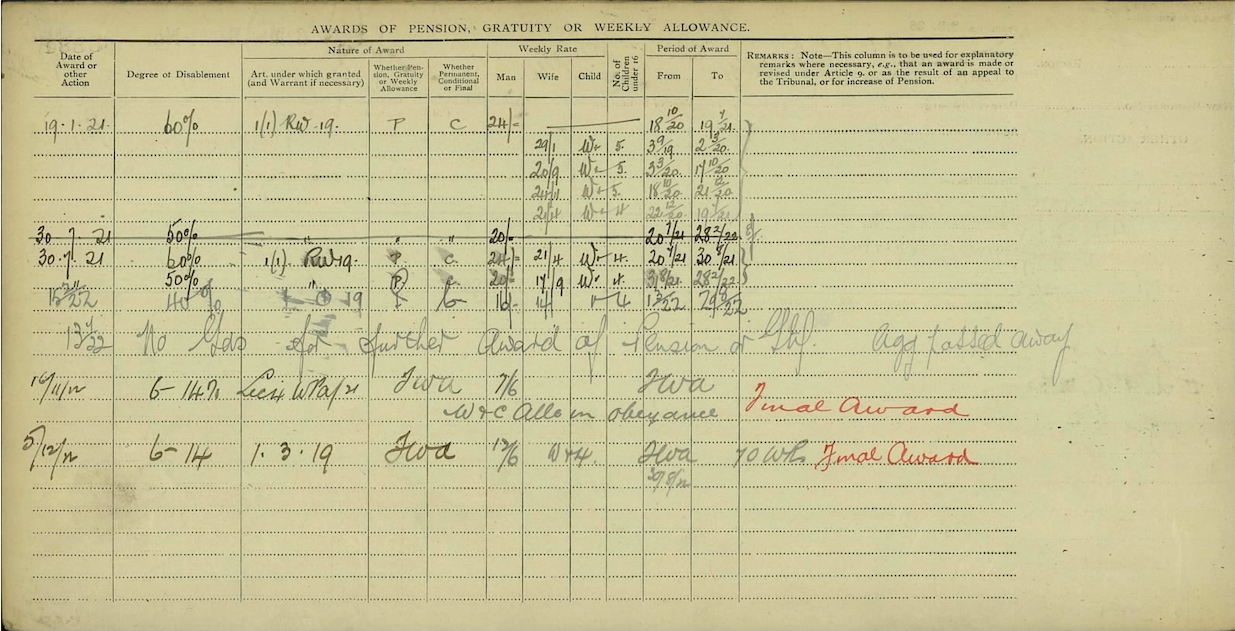 AWARDS OF PENSION, GRATUITY OR WEEKLY ALLOWANCE.
Date of Award or other Action
Degree of Disablement
Nature of Award
Art. under which granted (and Warrant if necessary)
Whether Pension, Gratuity or Weekly Allowance
Whether Permanent, Conditional or Final
Weekly Rate
Man
Wife
Child
No. of Children under 16
Period of Award
From
To
REMARKS: Note—This column is to be used for explanatory
remarks where necessary, e.g., that an award is made or
revised under Article 9, or as the result of an appeal to
the Tribunal, or for increase of Pension.
19.1.21 60% 1(1) RW 19. P C 24/- 18 10/20 19 7/21
29/1 W+ 5. 3 9/19
20/9 W+ 5. 17 10/20
W+ 5. 18 10/20
21/4 W+ 4 22 12/20 19 7/21
30 7 21 50% " " " 20/- 20 7/21 28 2/22
30.7.21 60% 1(1). RW 19. P C 24/- 21/4 W+ 4. 20 7/21
50% " P c 20/- 17/9 W+ 4. 28 2/22
40% 19 16/- 14/ 4 1 3/22
No Gds for further Award of Pension or Agg passed away
6-14% Fwa 7/6 Fwa
W+C Alls in abeyance Final Award
6-14 1.3.19 Fwa W+4. Fwa 70 Wks Final Award